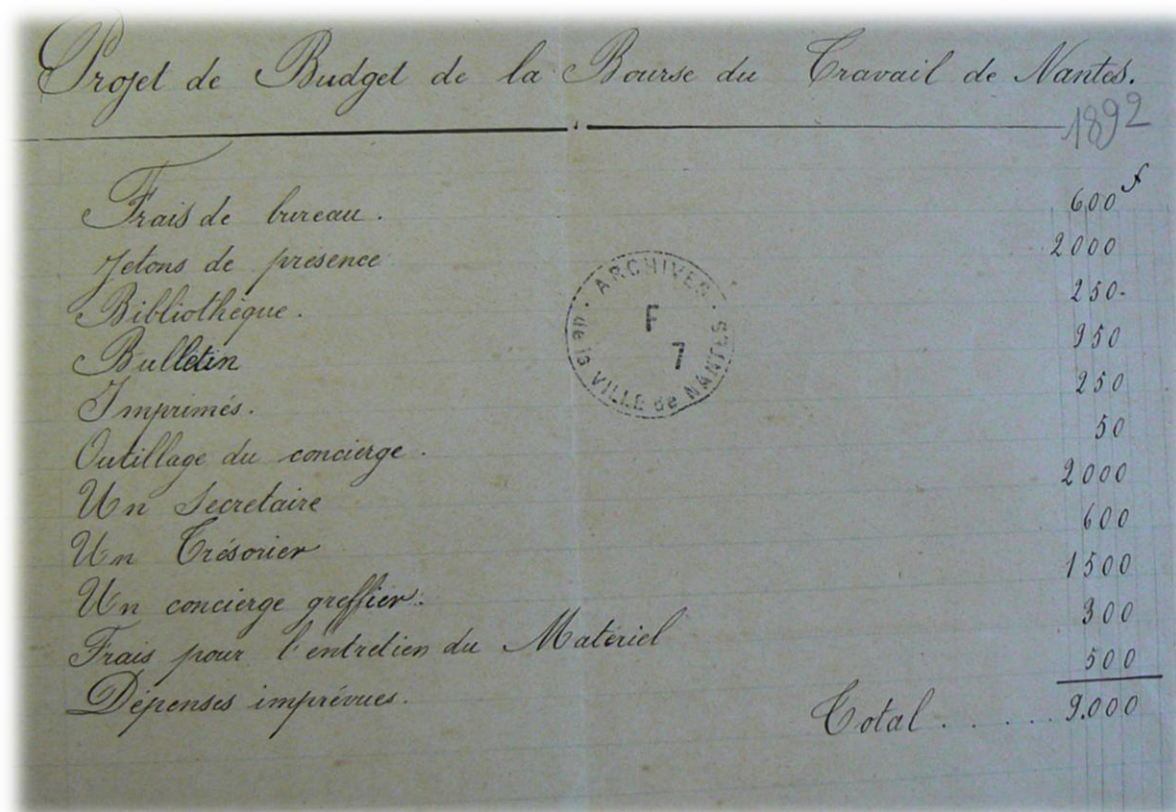 Projet de Budget de la Bourse du Travail de Nantes.
1892
Frais de bureau. 600 f
Jetons de présence 2000
Bibliothèque. 250-
Bulletin 950
Imprimés. 250
Outillage du concierge. 50
Un Secretaire 2000
Un Trésorier 600
Un concierge greffier. 1500
Frais pour l'entretien du Matériel 300
Dépenses imprévues. 500
Total . . . . . . 9.000
ARCHIVES
F
7
de la VILLE de NANTES